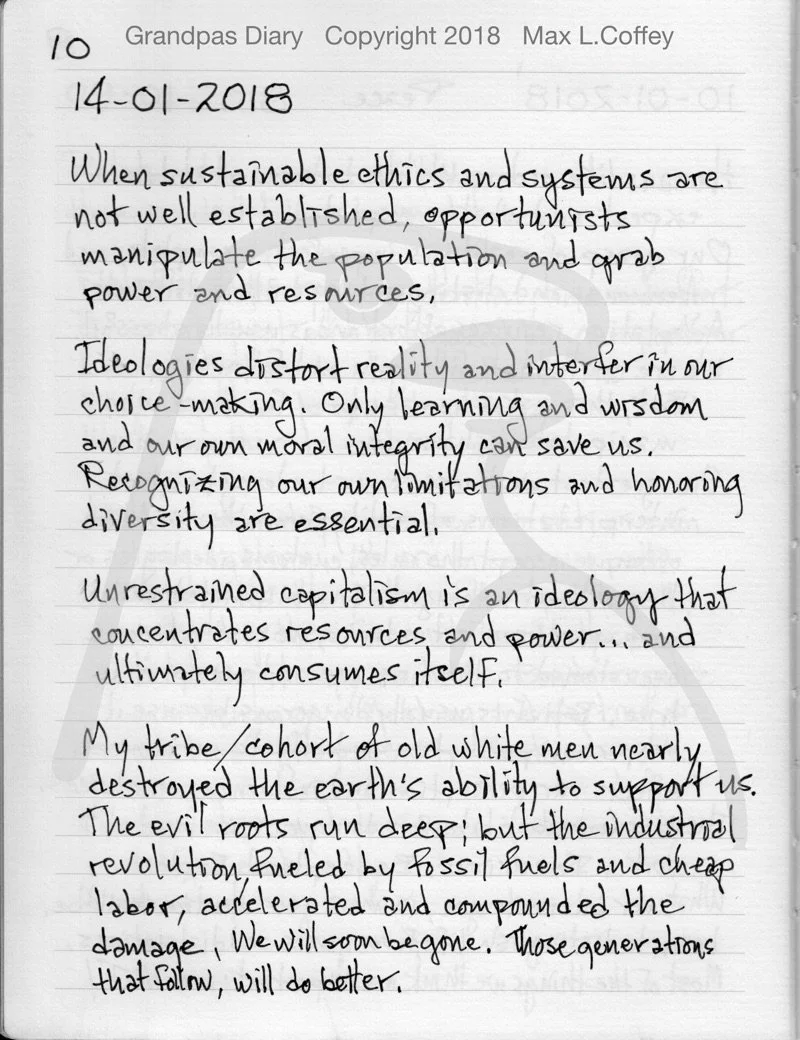 Grandpas Diary Copyright 2018 Max L.Coffey
10
14-01-2018
When sustainable ethics and systems are
not well established, opportunists
manipulate the population and grab
power and resources.
Ideologies distort reality and interfer in our
choice-making. Only learning and wisdom
and our own moral integrity can save us.
Recognizing our own limitations and honoring
diversity are essential.
Unrestrained capitalism is an ideology that
concentrates resources and power... and
ultimately consumes itself.
My tribe/cohort of old white men nearly
destroyed the earth's ability to support us.
The evil roots run deep; but the industrial
revolution, fueled by fossil fuels and cheap
labor, accelerated and compounded the
damage. We will soon be gone. Those generations
that follow, will do better.